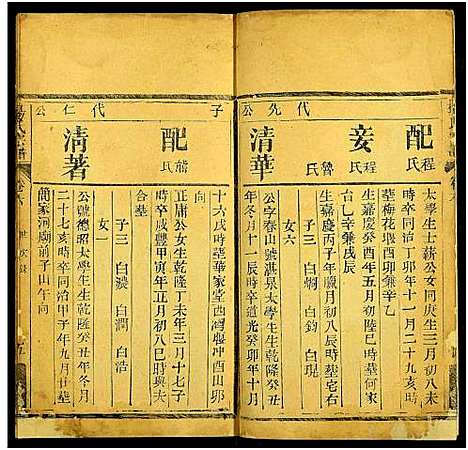 代先公
配 程氏
太學生士薪公女同庚生三月初八
時卒同治丁卯年十一月二十九亥時
墓梅花墩酉卯兼辛乙
妾 程氏 魯氏
生嘉慶癸酉年五月初陸巳時墓何家
台乙辛兼戊辰
生嘉慶丙子年 月初八辰時墓宅右
子三 白炯 白鈞 白現
女六
清華
公字春山號湛泉太學生生乾隆癸丑
年冬月十一辰時卒道光癸卯年十月
十六戌時墓華家堂西灣堰冲酉山卯
向
子代仁公
配 熊氏
正庸公女生乾隆丁未年三月十七子
時卒咸豐甲寅年正月初八巳時與夫
合墓
子三 白濃 白潤 白浩
女一
清著
公號德昭大學生生乾隆癸丑年冬月
二十七亥時卒同治甲子年九月廿墓
簡家河廟前子山午向
卷六
世次錄
五